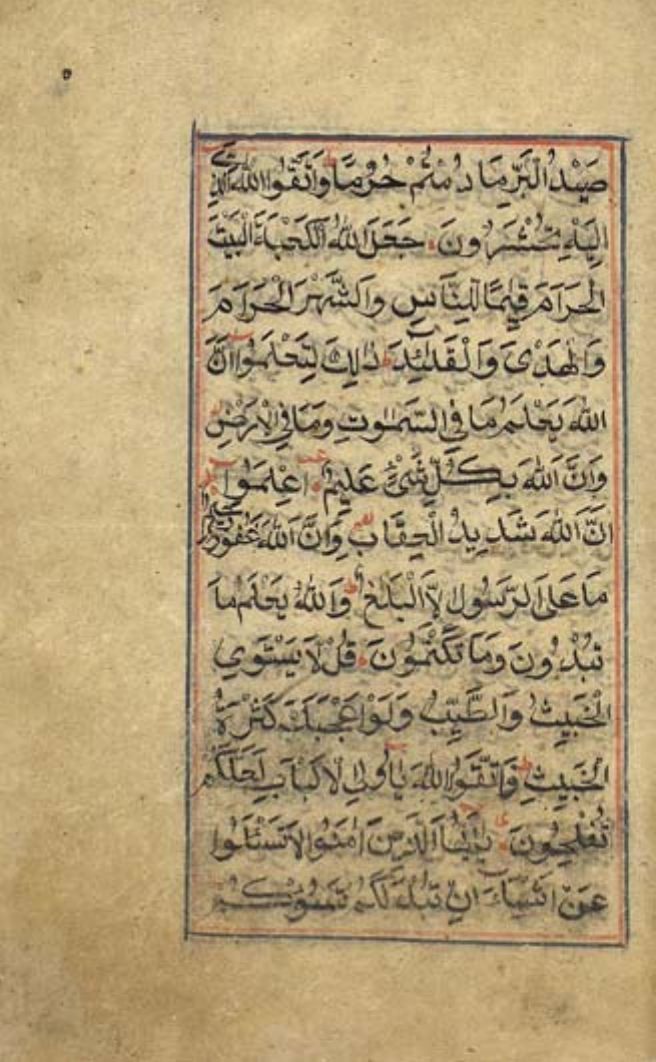 صَيْدُ الْبَرِّ مَا دُمْتُمْ حُرُمًا وَاتَّقُوا اللهَ الَّذِي
اِلَيْهِ تُحْشَرُونَ جَعَلَ اللهُ الْكَعْبَةَ الْبَيْتَ
الْحَرَامَ قِيٰمًا لِلنَّاسِ وَالشَّهْرَ الْحَرَامَ
وَالْهَدْىَ وَالْقَلٰئِدَ ذٰلِكَ لِتَعْلَمُوا اَنَّ
اللهَ يَعْلَمُ مَا فِي السَّمٰوٰتِ وَمَا فِي الْاَرْضِ
وَاَنَّ اللهَ بِكُلِّ شَيْءٍ عَلِيمٌ اِعْلَمُوا
اَنَّ اللهَ شَدِيدُ الْعِقَابِ وَاَنَّ اللهَ غَفُورٌ رَحِيمٌ
مَا عَلَى الرَّسُولِ اِلَّا الْبَلٰغُ وَاللهُ يَعْلَمُ مَا
تُبْدُونَ وَمَا تَكْتُمُونَ قُلْ لَا يَسْتَوِي
الْخَبِيثُ وَالطَّيِّبُ وَلَوْ اَعْجَبَكَ كَثْرَةُ
الْخَبِيثِ فَاتَّقُوا اللهَ يَا اُولِي الْاَلْبَابِ لَعَلَّكُمْ
تُفْلِحُونَ يٰاَيُّهَا الَّذِينَ اٰمَنُوا لَا تَسْئَلُوا
عَنْ اَشْيَاءَ اِنْ تُبْدَ لَكُمْ تَسُؤْكُمْ